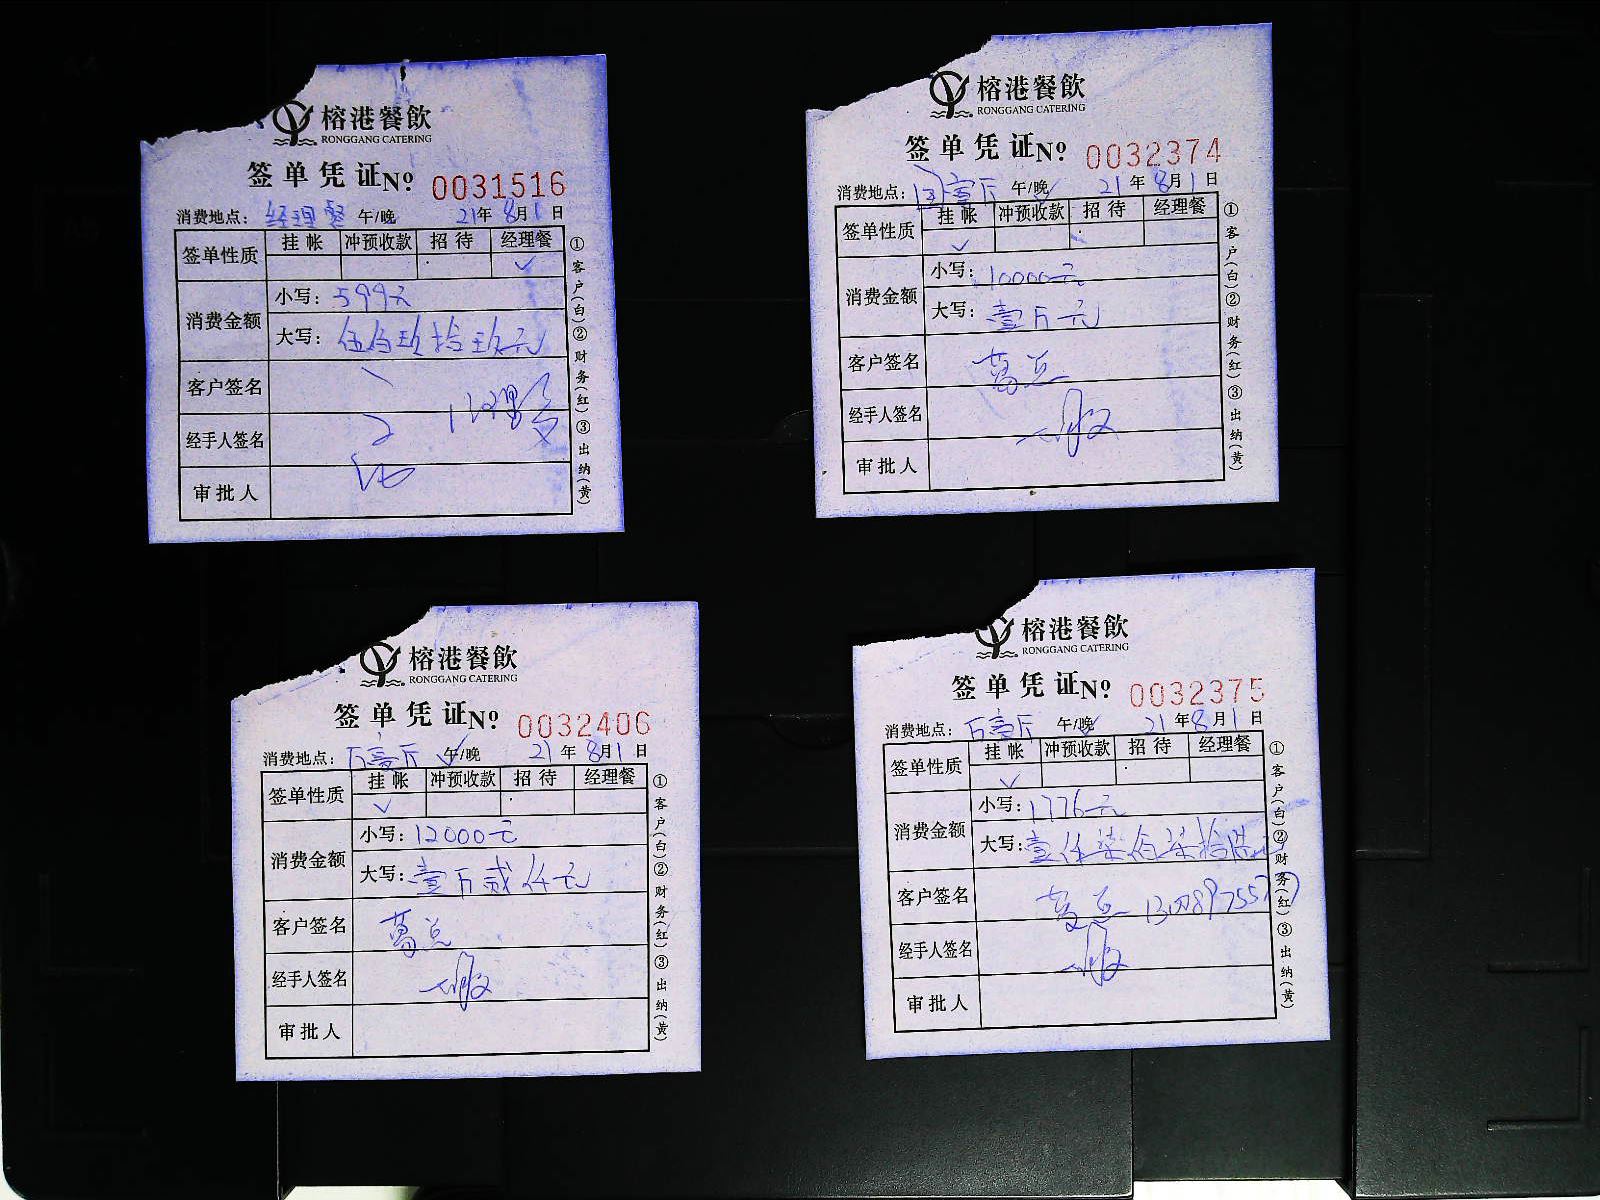 榕港餐飲
RONGGANG CATERING
签单凭证№ 0031516
消费地点: 经理餐 午/晚 21年8月1日
签单性质 挂帐 冲预收款 招待 经理餐
✓
消费金额 小写: 599元
大写: 伍佰玖拾玖元
客户签名
经手人签名
审批人
①客户(白)②财务(红)③出纳(黄)
榕港餐飲
RONGGANG CATERING
签单凭证№ 0032374
消费地点: 午/晚 21年8月1日
签单性质 挂帐 冲预收款 招待 经理餐
✓
消费金额 小写: 10000元
大写: 壹万元
客户签名 葛总
经手人签名
审批人
①客户(白)②财务(红)③出纳(黄)
榕港餐飲
RONGGANG CATERING
签单凭证№ 0032406
消费地点: 万豪厅 午/晚 21年8月1日
签单性质 挂帐 冲预收款 招待 经理餐
✓
消费金额 小写: 12000元
大写: 壹万贰仟元
客户签名 葛总
经手人签名
审批人
①客户(白)②财务(红)③出纳(黄)
榕港餐飲
RONGGANG CATERING
签单凭证№ 0032375
消费地点: 万豪厅 午/晚 21年8月1日
签单性质 挂帐 冲预收款 招待 经理餐
✓
消费金额 小写: 1776元
大写: 壹仟柒佰柒拾陆元
客户签名 葛总
经手人签名
审批人
①客户(白)②财务(红)③出纳(黄)